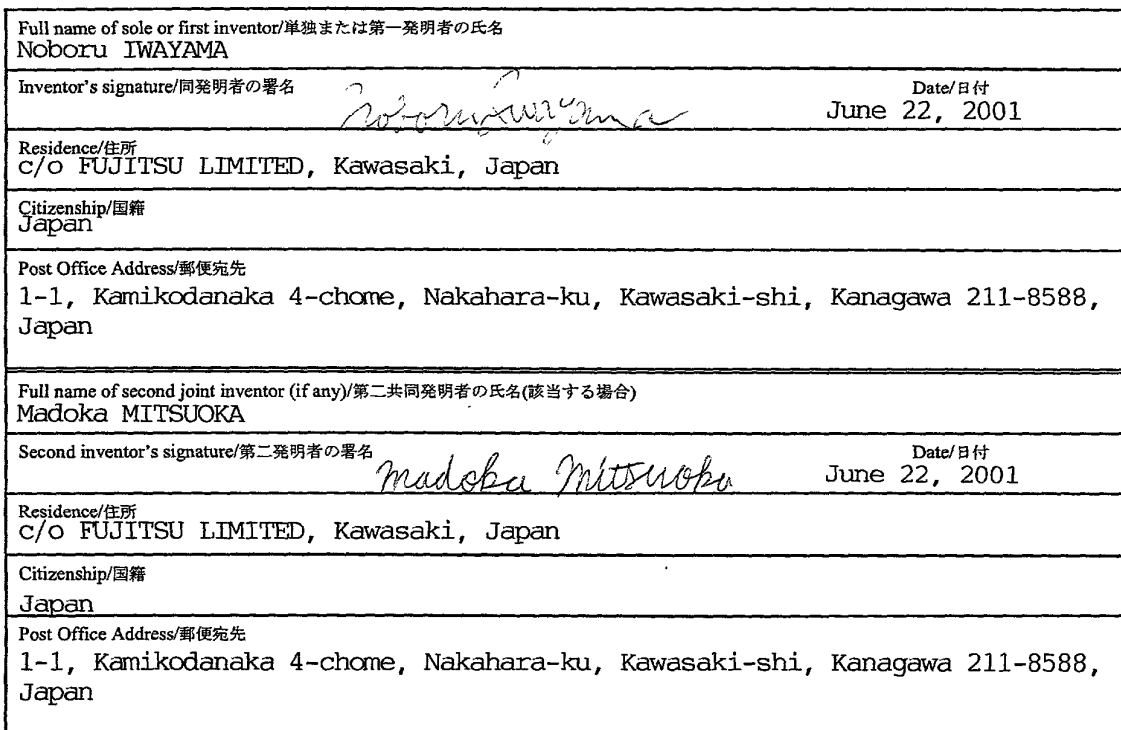 Full name of sole or first inventor/単独または第一発明者の氏名
Noboru IWAYAMA
Inventor's signature/同発明者の署名 Noboru Iwayama Date/日付
June 22, 2001
Residence/住所
c/o FUJITSU LIMITED, Kawasaki, Japan
Citizenship/国籍
Japan
Post Office Address/郵便宛先
1-1, Kamikodanaka 4-chome, Nakahara-ku, Kawasaki-shi, Kanagawa 211-8588,
Japan
Full name of second joint inventor (if any)/第二共同発明者の氏名(該当する場合)
Madoka MITSUOKA
Second inventor's signature/第二発明者の署名 Madoka Mitsuoka Date/日付
June 22, 2001
Residence/住所
c/o FUJITSU LIMITED, Kawasaki, Japan
Citizenship/国籍
Japan
Post Office Address/郵便宛先
1-1, Kamikodanaka 4-chome, Nakahara-ku, Kawasaki-shi, Kanagawa 211-8588,
Japan